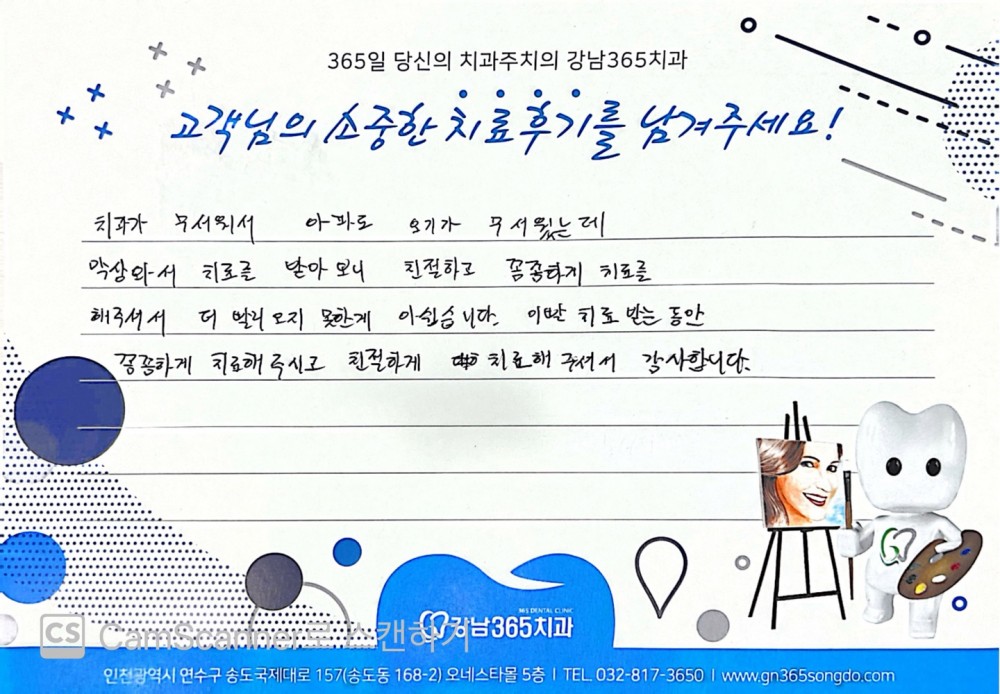 365일 당신의 치과주치의 강남365치과
고객님의 소중한 치료후기를 남겨주세요!
치과가 무서워서 아파도 오기가 무서웠는데
막상와서 치료를 받아 보니 친절하고 꼼꼼하게 치료를
해주셔서 더 빨리 오지 못한게 아쉽습니다. 이번 치료 받는 동안
꼼꼼하게 치료해 주시고 친절하게 치료해 주셔서 감사합니다.
365 DENTAL CLINIC
강남365치과
CS CamScanner로 스캔하기
인천광역시 연수구 송도국제대로 157(송도동 168-2) 오네스타몰 5층 I TEL. 032-817-3650 I www.gn365songdo.com